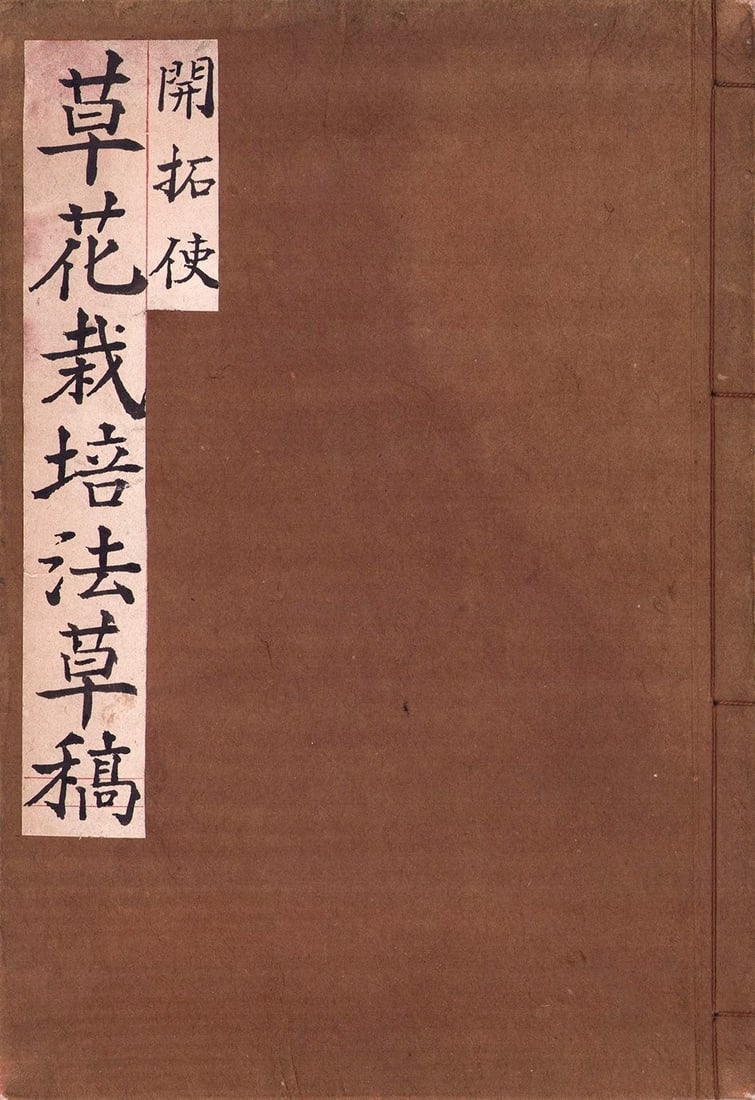 開拓使
草花栽培法草稿